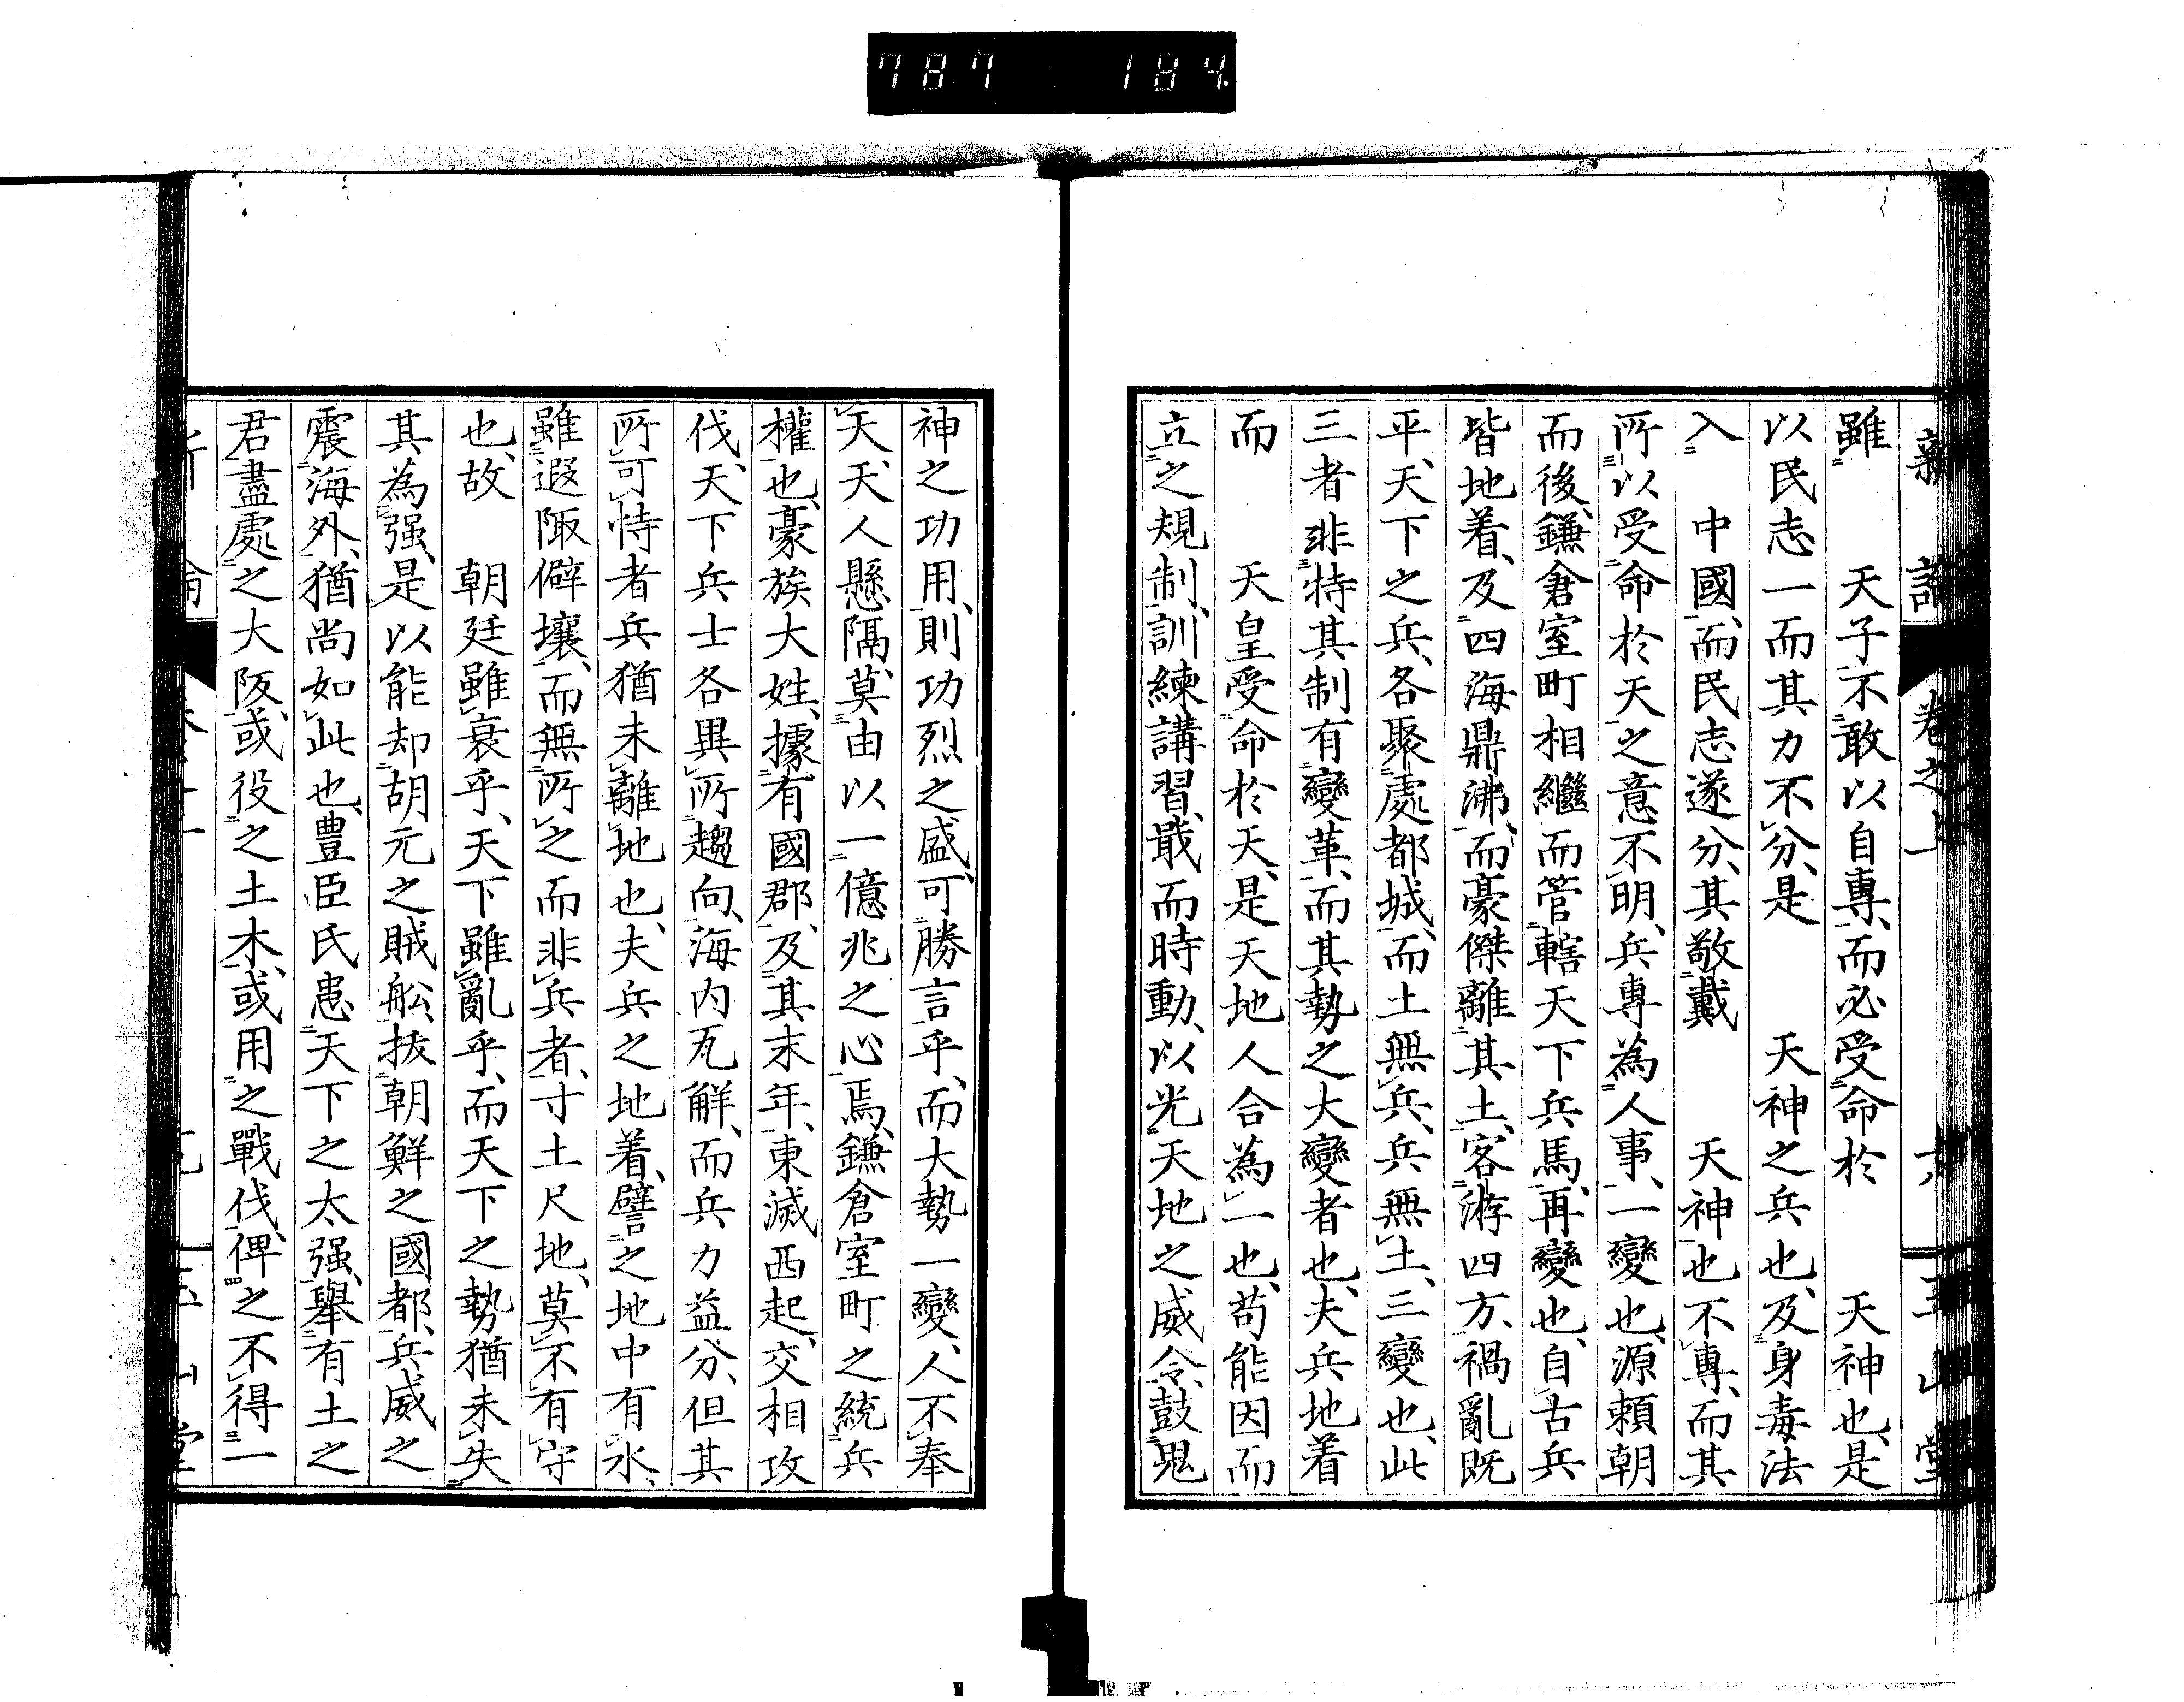 787 184
新論 卷之上 六 玉山堂
雖 天子不敢以自專、而必受命於 天神也、是
以民志一而其力不分、是 天神之兵也、及身毒法
入 中國、而民志遂分、其敬戴 天神也不專、而其
所以受命於天之意不明、兵專為人事、一變也、源賴朝
而後、鎌倉室町相繼而管轄天下兵馬、再變也、自古兵
皆地着、及四海鼎沸、而豪傑離其土、客游四方、禍亂既
平、天下之兵、各聚處都城、而土無兵、兵無土、三變也、此
三者非特其制有變革、而其勢之大變者也、夫兵地着
而 天皇受命於天、是天地人合為一也、苟能因而
立之規制、訓練講習、戢而時動、以光天地之威令、鼓鬼
神之功用、則功烈之盛、可勝言乎、而大勢一變、人不奉
天、天人懸隔、莫由以一億兆之心焉、鎌倉室町之統兵
權也、豪族大姓、據有國郡、及其末年、東滅西起、交相攻
伐、天下兵士各異所趨向、海内瓦解、而兵力益分、但其
所可恃者兵猶未離地也、夫兵之地着、譬之地中有水、
雖遐陬僻壤、而無所之而非兵者、寸土尺地、莫不有守
也、故 朝廷雖衰乎、天下雖亂乎、而天下之勢猶未失
其為强、是以能却胡元之賊舩、拔朝鮮之國都、兵威之
震海外、猶尚如此也、豊臣氏患天下之太强、舉有土之
君盡處之大阪、或役之土木、或用之戰伐、俾之不得一